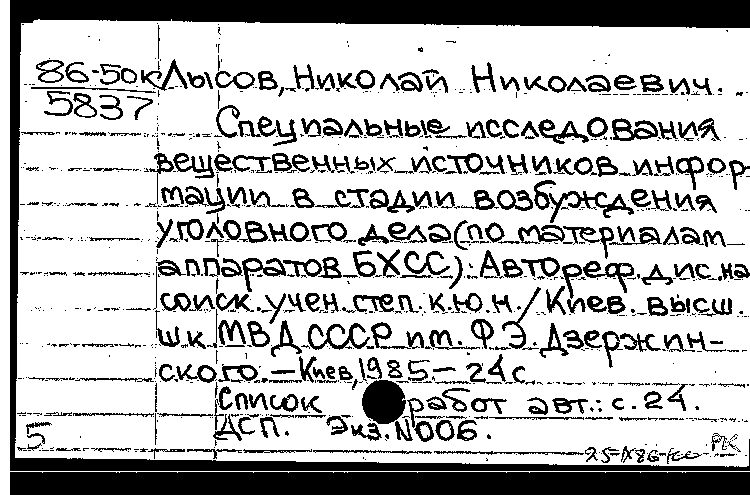 86-50к Лысов, Николай Николаевич.
5837
Специальные исследования
вещественных источников инфор-
мации в стадии возбуждения
уголовного дела (по материалам
аппаратов БХСС): Автореф. дис. на
соиск. учен. степ. к.ю.н. / Киев. высш.
шк. МВД СССР им. Ф.Э. Дзержин-
ского. — Киев, 1985 — 24 с.
Список работ авт.: с. 24.
ДСП. Экз. N006.
5
РК